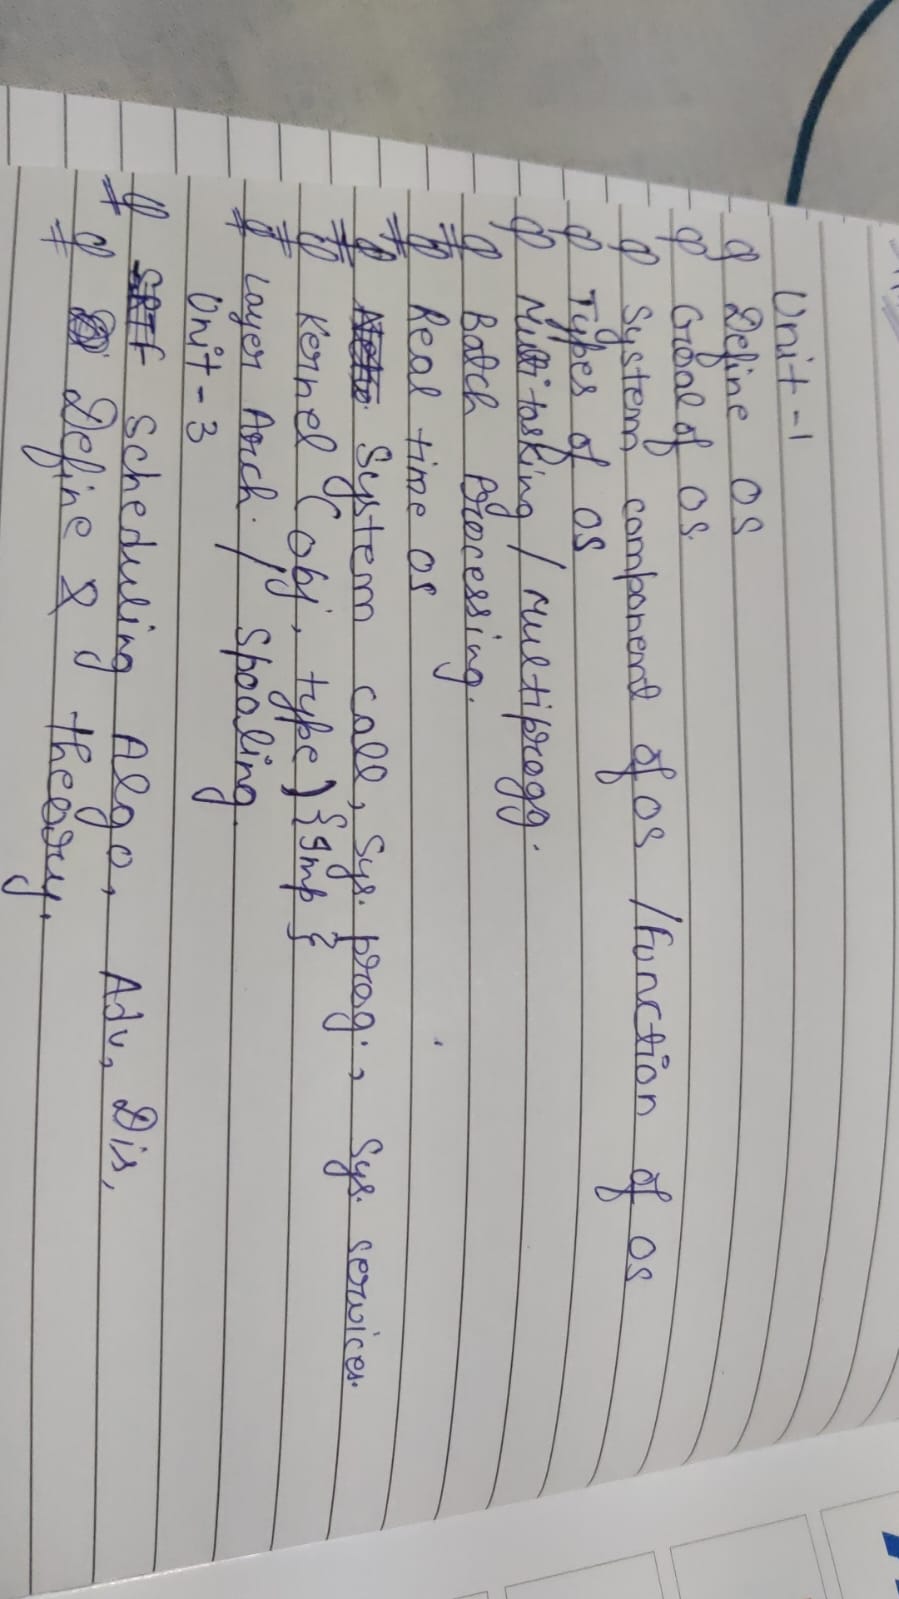 Unit-1
Q Define OS
Q Goal of OS.
Q System component of OS / Function of OS
Q Types of OS
Q Multitasking / multiprogg.
Q Batch Processing.
Q Real time OS
Q System call, Sys. prog., Sys. services.
Q Kernel (Obj, type) {Imp}
Q Layer Arch. / Spooling.
Unit-3
Q SRTF Scheduling Algo, Adv, Dis,
Q Define & theory.